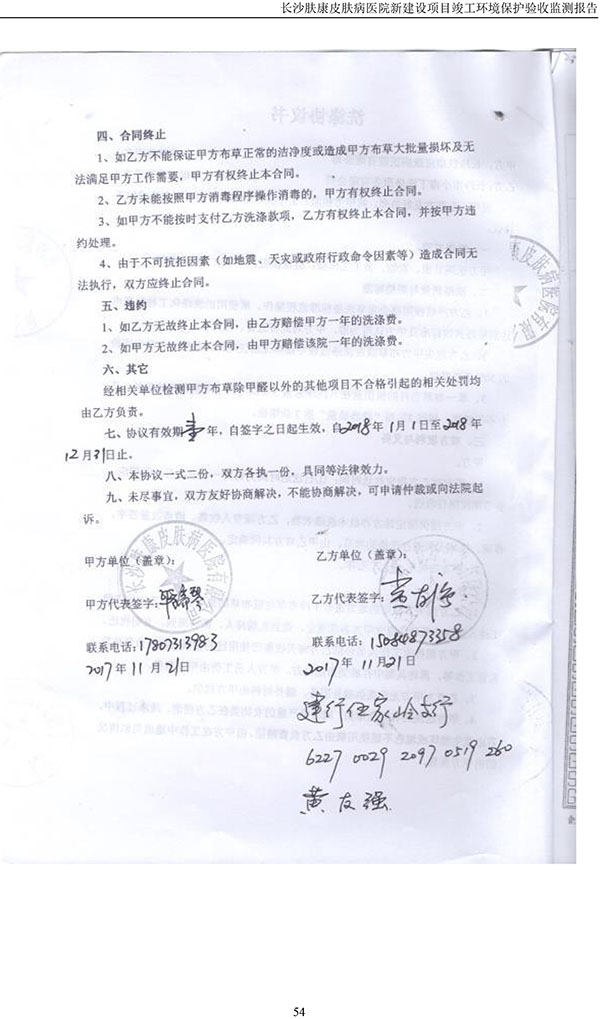 长沙肤康皮肤病医院新建设项目竣工环境保护验收监测报告
洗涤协议书
四、合同终止
1、如乙方不能保证甲方布草正常的洁净度或造成甲方布草大批量损坏及无
法满足甲方工作需要，甲方有权终止本合同。
2、乙方未能按照甲方消毒程序操作消毒的，甲方有权终止合同。
3、如甲方不能按时支付乙方洗涤款项，乙方有权终止本合同，并按甲方违
约处理。
4、由于不可抗拒因素（如地震、天灾或政府行政命令因素等）造成合同无
法执行，双方应终止合同。
五、违约
1、如乙方无故终止本合同，由乙方赔偿甲方一年的洗涤费。
2、如甲方无故终止本合同，由甲方赔偿该院一年的洗涤费。
六、其它
经相关单位检测甲方布草除甲醛以外的其他项目不合格引起的相关处罚均
由乙方负责。
七、协议有效期壹年，自签字之日起生效，自2018年1月1日至2018年
12月31日止。
八、本协议一式二份，双方各执一份，具同等法律效力。
九、未尽事宜，双方友好协商解决，不能协商解决，可申请仲裁或向法院起
诉。
甲方单位（盖章）： 乙方单位（盖章）：
长沙肤康皮肤病医院有限公司
甲方代表签字： 乙方代表签字：黄友强
联系电话：17807313983 联系电话：15084873358
2017年11月21日 2017年11月21日
建行任家岭支行
6227 0029 2097 0519 260
黄友强
54